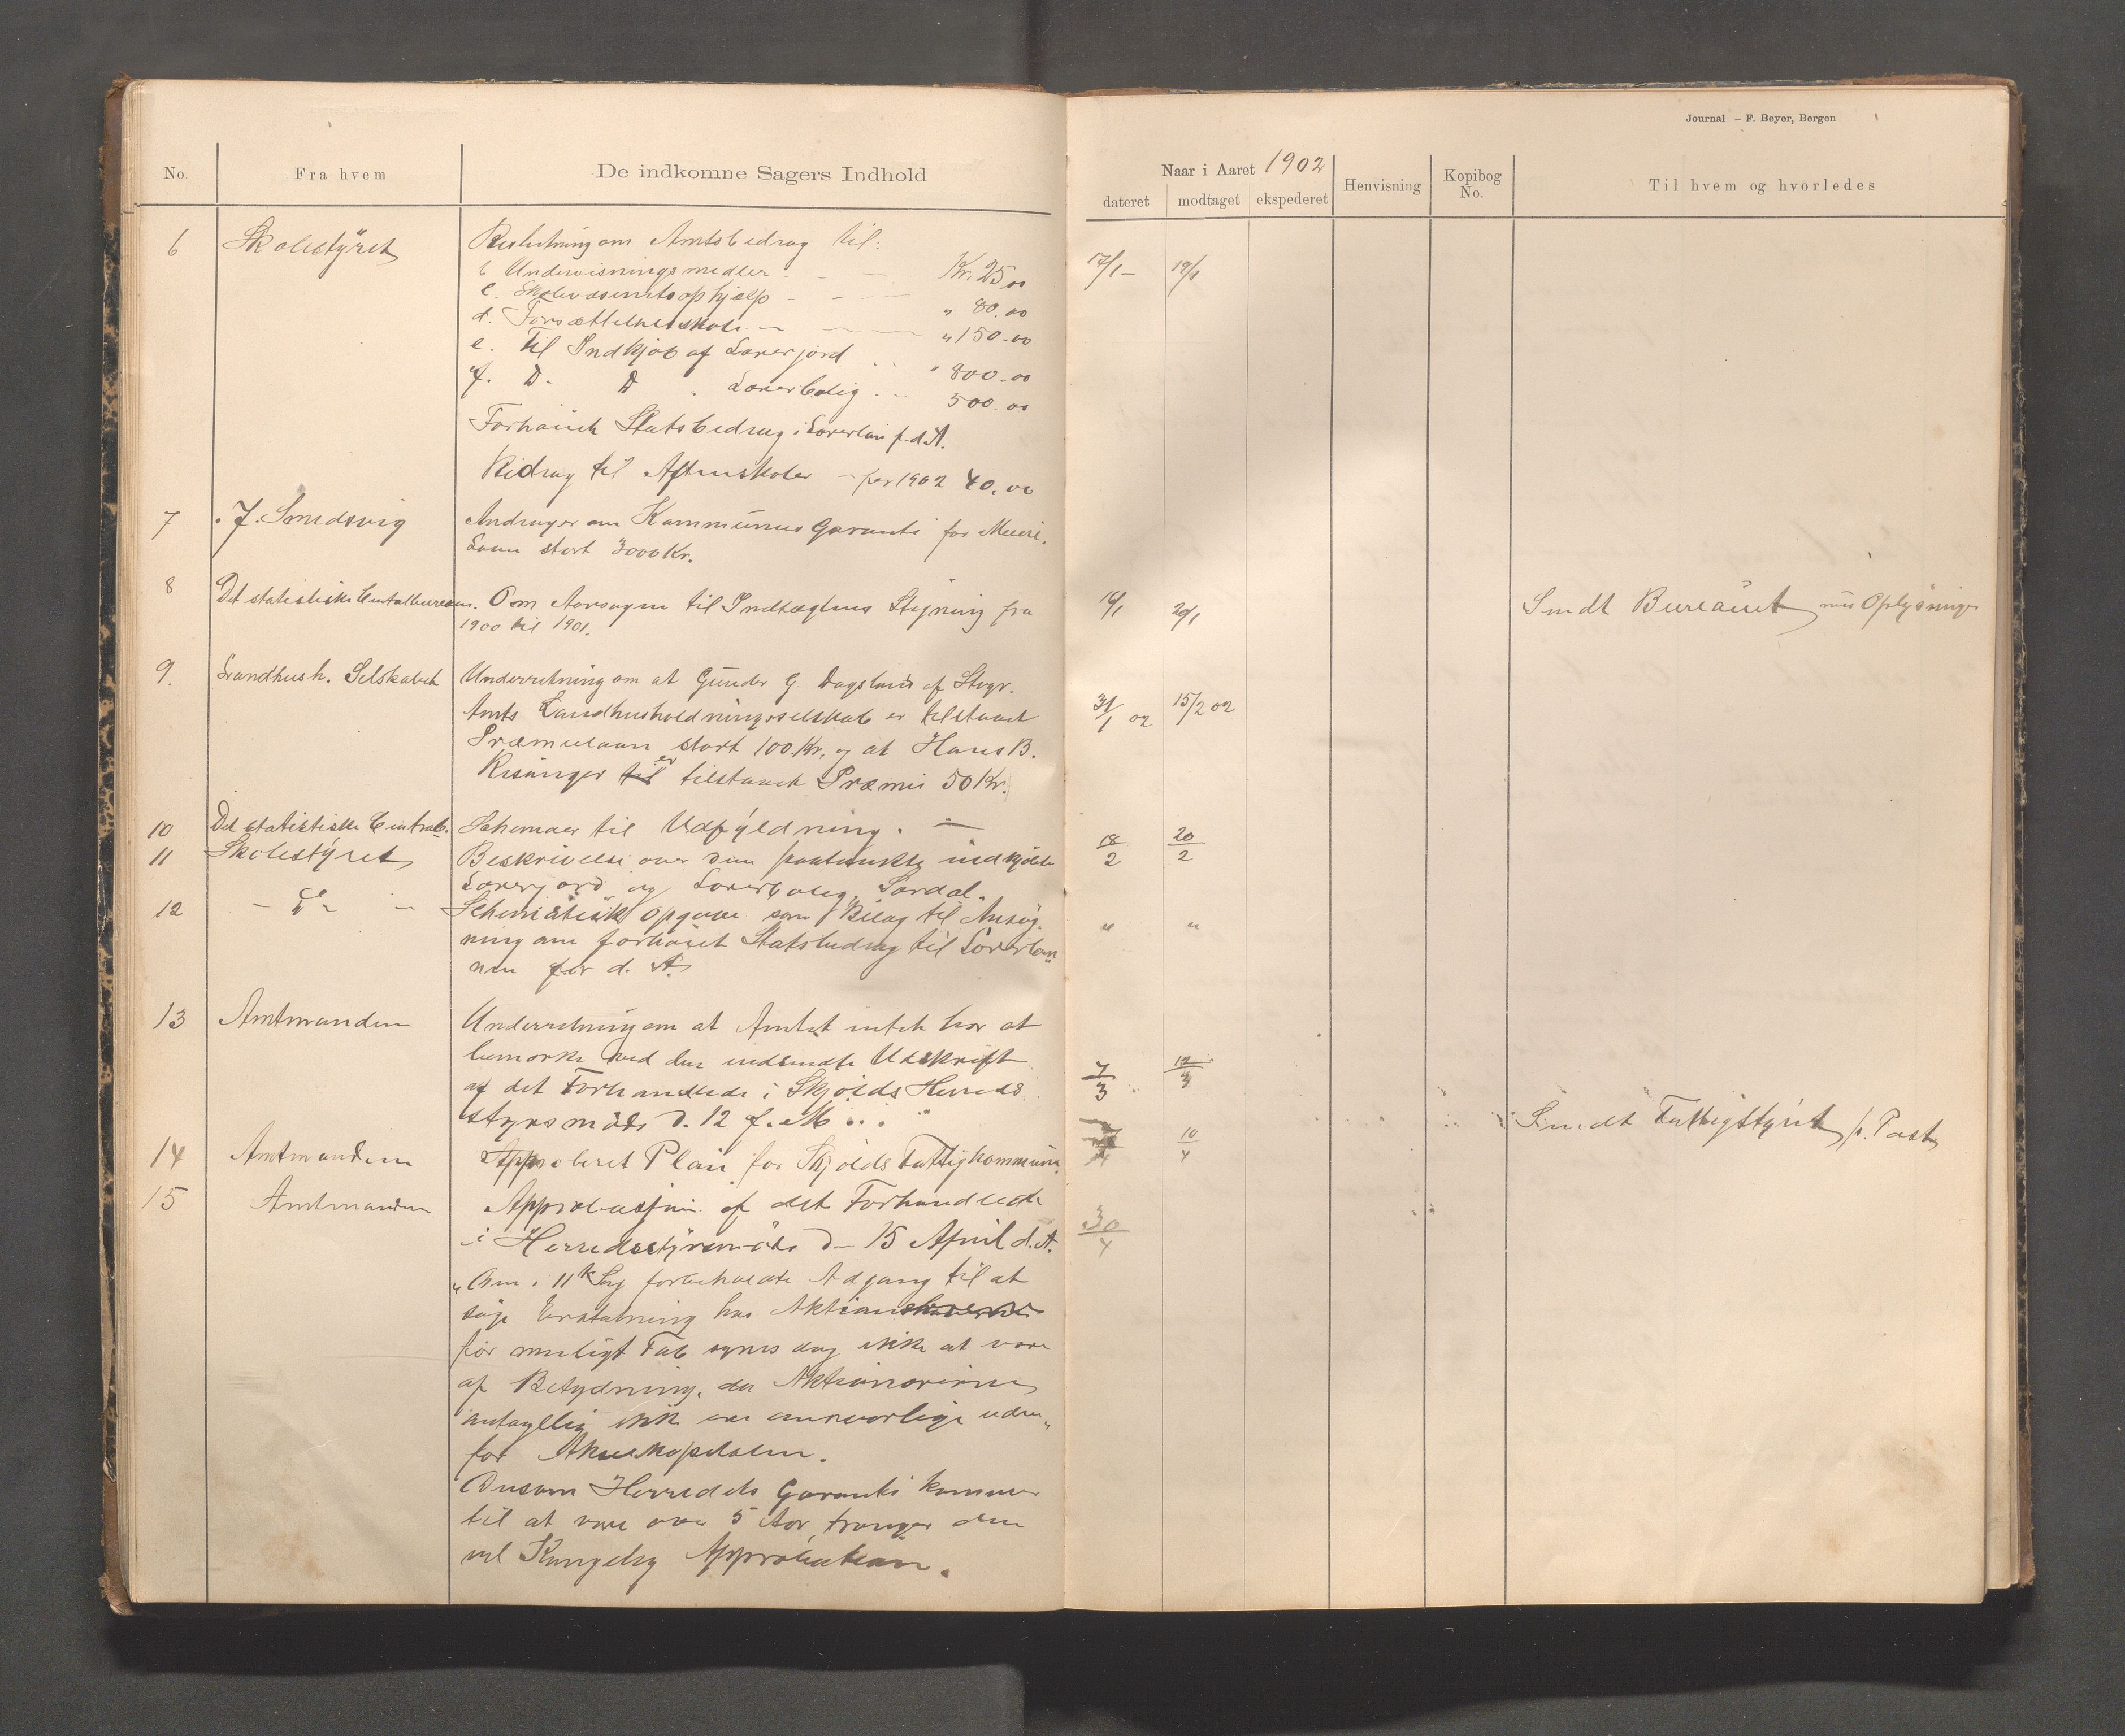 Journal – F. Beyer, Bergen
No. Fra hvem De indkomne Sagers Indhold
Naar i Aaret 1902 Henvisning Kopibog No. Til hvem og hvorledes
dateret modtaget ekspederet
6 Skolestÿret Beslutning om Amtsbidrag til: 17/1 – 19/1
b Undervisningsmedler - - – Kr. 25,00
c. Skolevæsenets ophjælp - - - – „ 80.00
d. Forsættelsesskole – – – – „ 150.00
e. Til Indkjøb af Lærerjord . . " 800.00
f. D. D . Lærerbolig . - 500.00
Forhøiet Statsbedrag i Lærerløn f. d. A.
Bidrag til Aftenskoler – for 1902 40,00
7 J. Smedsvig Andrager om Kommunens Garanti for Meieri.
Laan stort 3000 Kr.
8 Det statistiske Centralbureau. Om Aarsagen til Indtægtens Stigning fra 20/1 Sendt Bureauet Oplysninger
1900 til 1901.
9. Landhush. Selskabet Underretning om at Gunder G. Dagsland af Stvgr. 31/1 02 15/2 02
Amts Landhusholdningsselskab er tilstaaet
Præmielaan stort 100 Kr. og at Hans B.
Risanger til er tilstaaet Præmie 50 Kr.
10 Det statistiske Centralb. Schemaer til Udfÿldning. – 18/2 20/2
11 Skolestÿret Beskrivelse over den paatænkte indkjøbte
Lærerjord og Lærerbolig, Sørdal.
12 – Do – – Schematisk opgave som Bilag til Ansøg- " "
ning om forhøiet Statsbidrag til Lærerløn
nen for d. A.
13 Amtmanden Underretning om at Amtet intet har at
bemærke ved den indsendte Udskrift 7/3 12/3
af det Forhandlede i Skjolds Herreds
styrsmøde d. 12 f. M . . .
14 Amtmanden Approberet Plan for Skjolds Fattigkommune. 10/4 Sendt Fattigstÿret p. Post
15 Amtmanden Approbasjon af det Forhandlede 30/4
i Herredsstÿrsmøde d – 15 April d. A.
„Den i 11te Sag forbeholdte Adgang til at
søge Erstatning hos Aktionshaverne
for muligt Tab synes dog ikke at være
af Betydning, da Aktionærerne
antagelig ikke ere ansvarlige uden
for Aksiekapitalen.
Dersom Herredets Garanti kommer
til at vare over 5 Aar, trænger den
vel Kongelig Approbation.